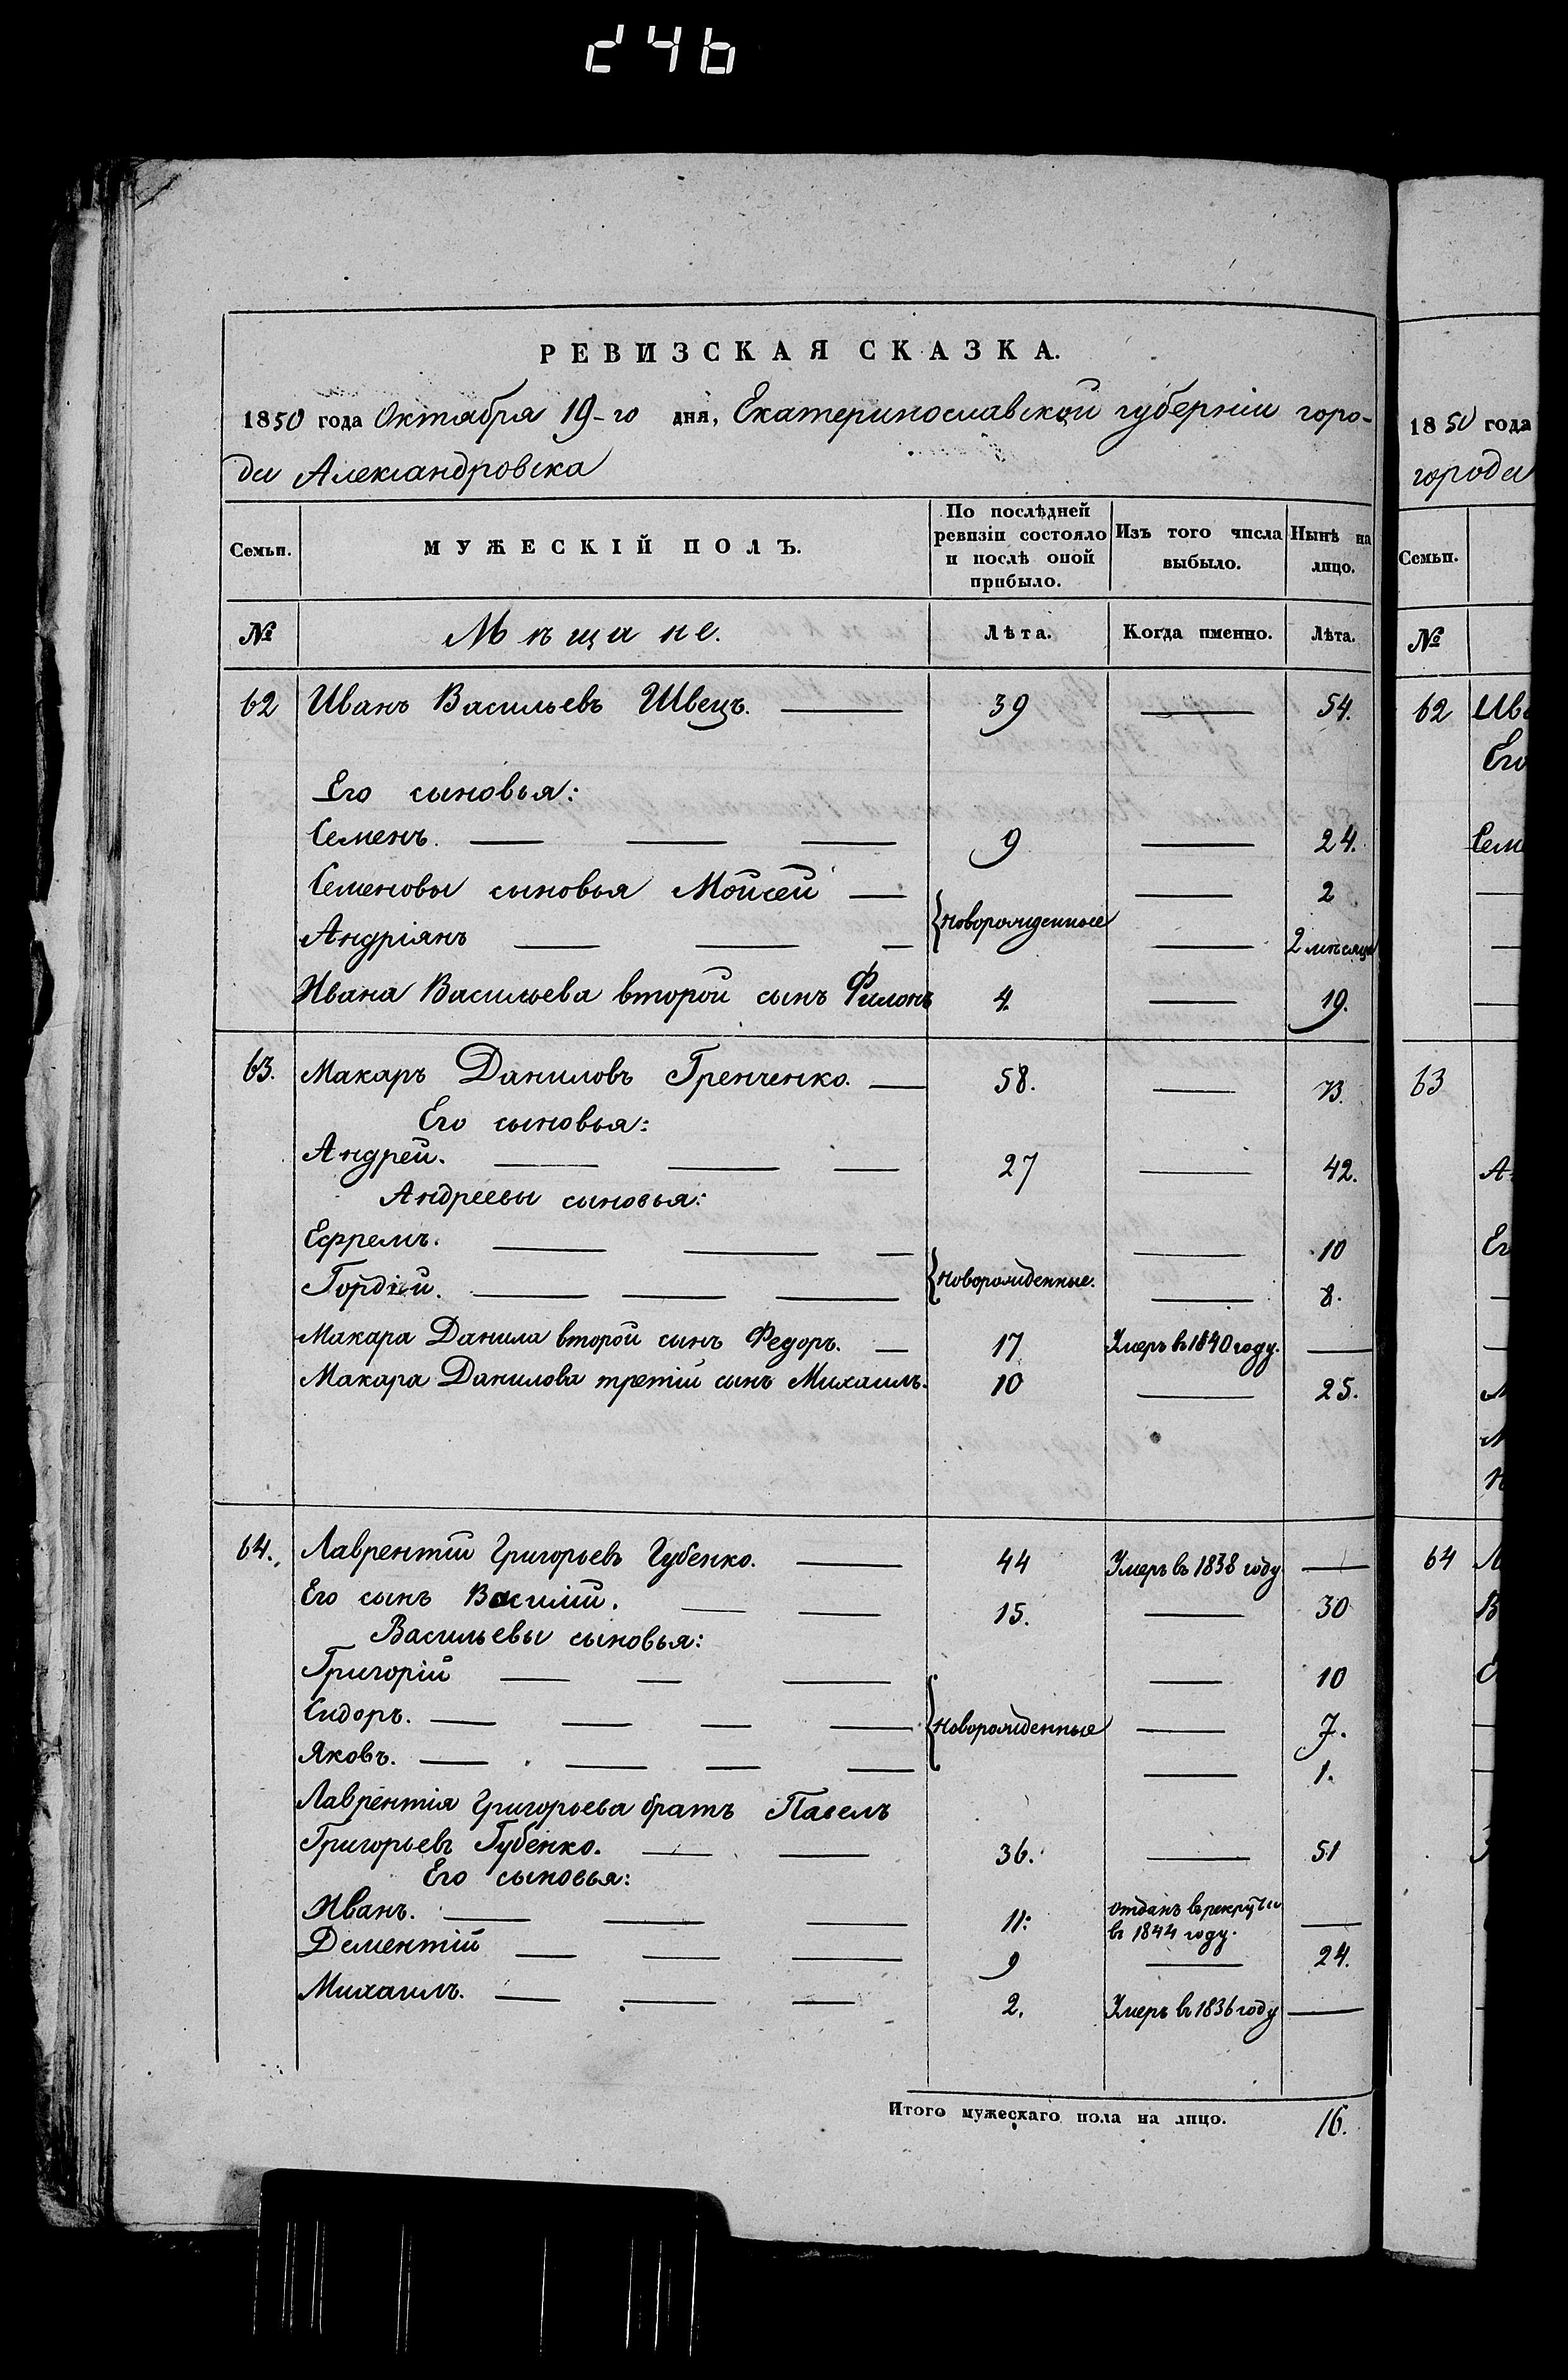 246
РЕВИЗСКАЯ СКАЗКА.
1850 года Октября 19-го дня, Екатеринославской губерніи горо-
да Александровска
Семьи.
МУЖЕСКІЙ ПОЛЪ.
По послѣдней ревизіи состояло и послѣ оной прибыло.
Изъ того числа выбыло.
Нынѣ на лицо.
№ Мѣщане. Лѣта. Когда именно. Лѣта.
62 Иванъ Васильевъ Швецъ. — 39 — 54.
Его сыновья:
Семенъ. — — — 9 — 24.
Семеновы сыновья Мойсей — — 2
{новорожденные
Андріянъ — — — — 2 мѣсяца
Ивана Васильева второй сынъ Филонъ 4. — 19.
63. Макаръ Даниловъ Гренченко. — 58. — 73.
Его сыновья:
Андрей. — — — 27 — 42.
Андреевы сыновья:
Ефремъ. — — — — 10
{новорожденные.
Гордій. — — — — 8.
Макара Данила второй сынъ Федоръ. — 17 Умеръ въ 1840 году. —
Макара Данилова третій сынъ Михаилъ. 10 — 25.
64. Лаврентій Григорьевъ Губенко. — 44 Умеръ въ 1838 году —
Его сынъ Василій. — — 15. — 30
Васильевы сыновья:
Григорій — — — — 10
Сидоръ. — — — — {новорожденные — 7.
Яковъ. — — — — — 1.
Лаврентія Григорьева братъ Павелъ
Григорьевъ Губенко. — — 36. — 51
Его сыновья:
Иванъ. — — — 11. отданъ въ рекруты
въ 1844 году. —
Дементій — — — 9 — 24.
Михаилъ. — — — 2. Умеръ въ 1836 году —
Итого мужескаго пола на лицо. 16.
1850 года
города
Семьи.
№
62 Ива
Его
Семе
63
А
Е
64 Л
В